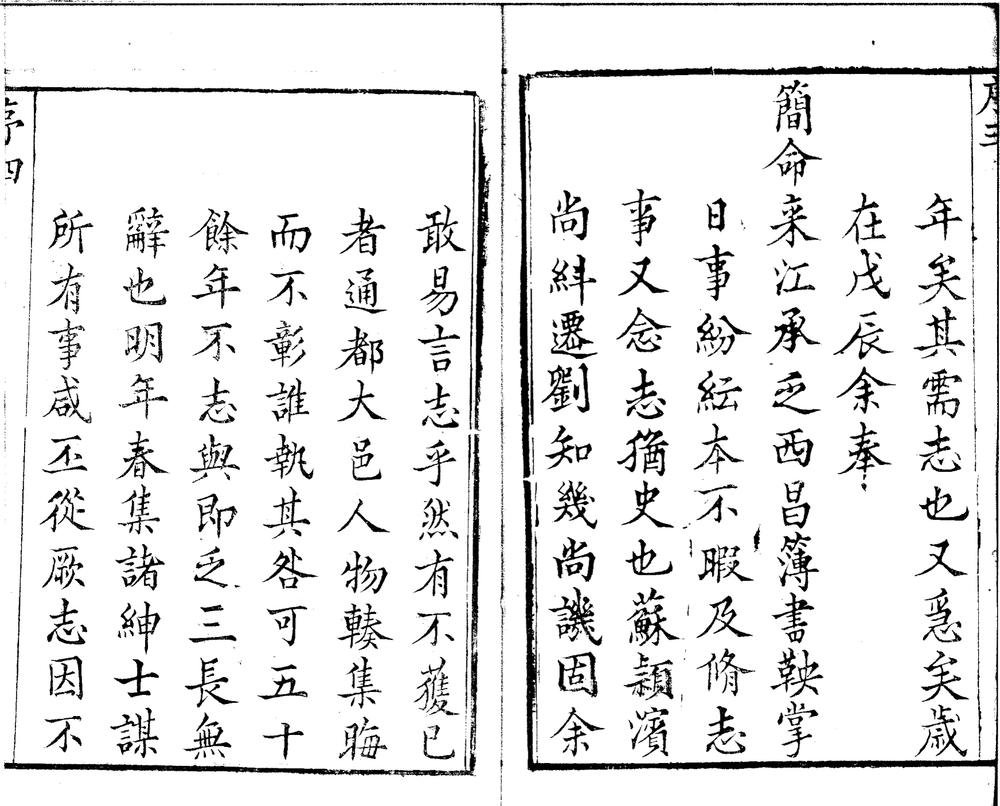 序三
年矣其需志也又急矣歲
在戊辰余奉
簡命来江承乏西昌簿書鞅掌
日事紛紜本不暇及脩志
事又念志猶史也蘇潁濱
尚紏遷劉知幾尚譏固余
敢易言志乎然有不獲已
者通都大邑人物輳集晦
而不彰誰執其咎可五十
餘年不志與即乏三長無
辭也明年春集諸紳士謀
所有事咸丕從厥志因不
序四